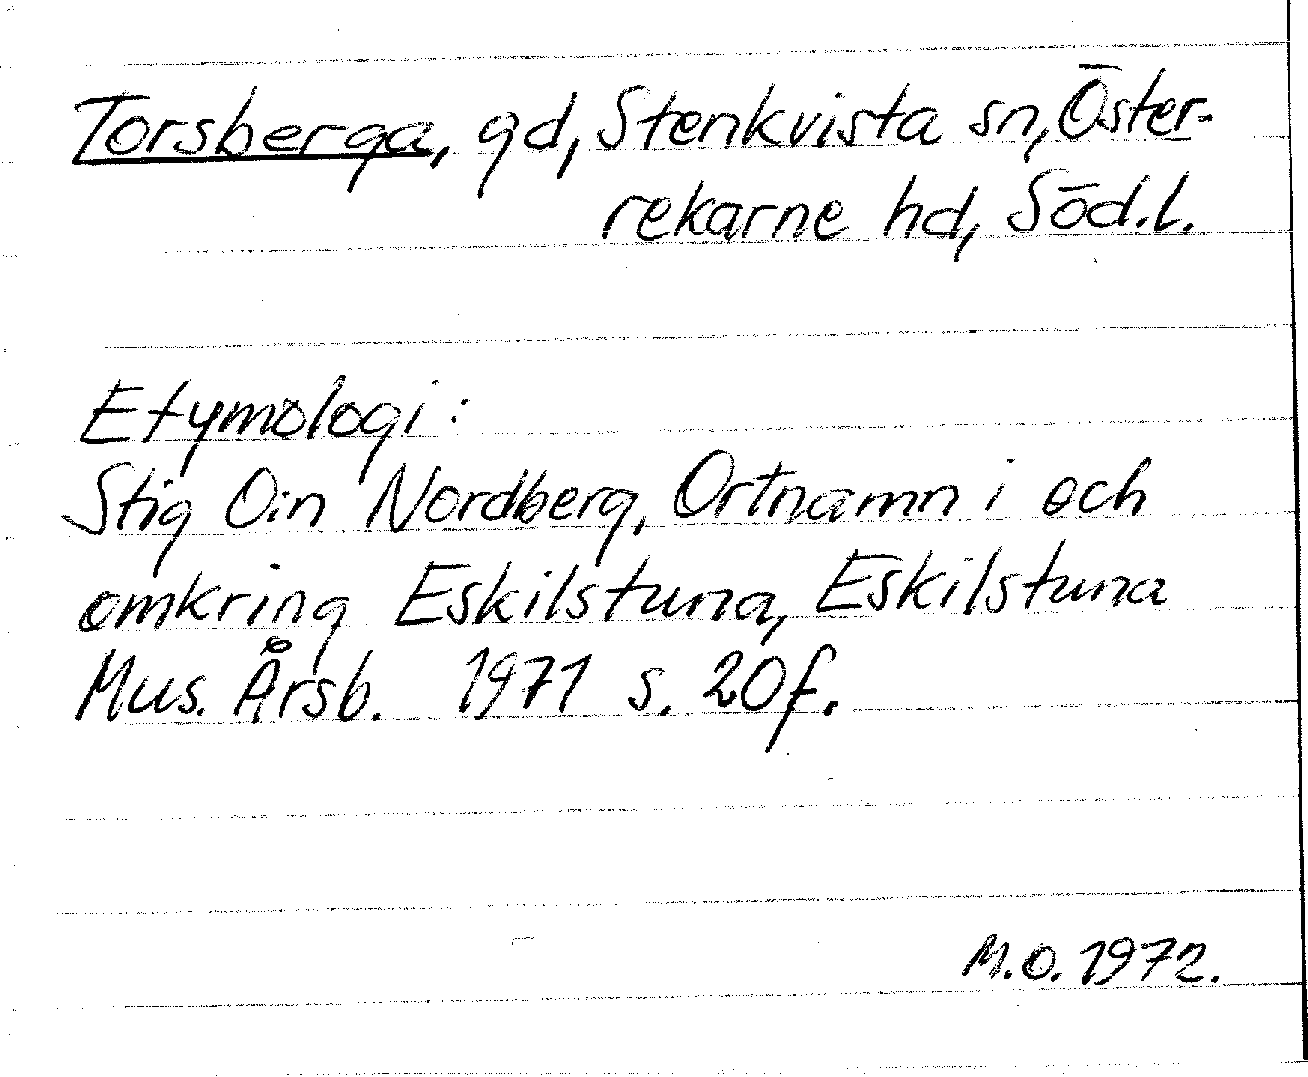 Torsberga, gd, Stenkvista sn, Öster-
rekarne hd, Söd.l.
Etymologi:
Stig Oin Nordberg, Ortnamn i och
omkring Eskilstuna, Eskilstuna
Mus. Årsb. 1971 s. 20f.
M.O. 1972.